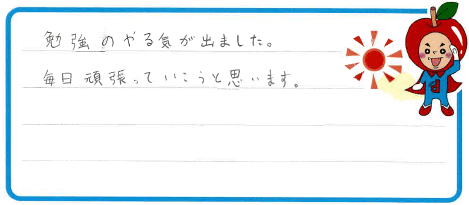 勉強のやる気が出ました。
毎日頑張っていこうと思います。